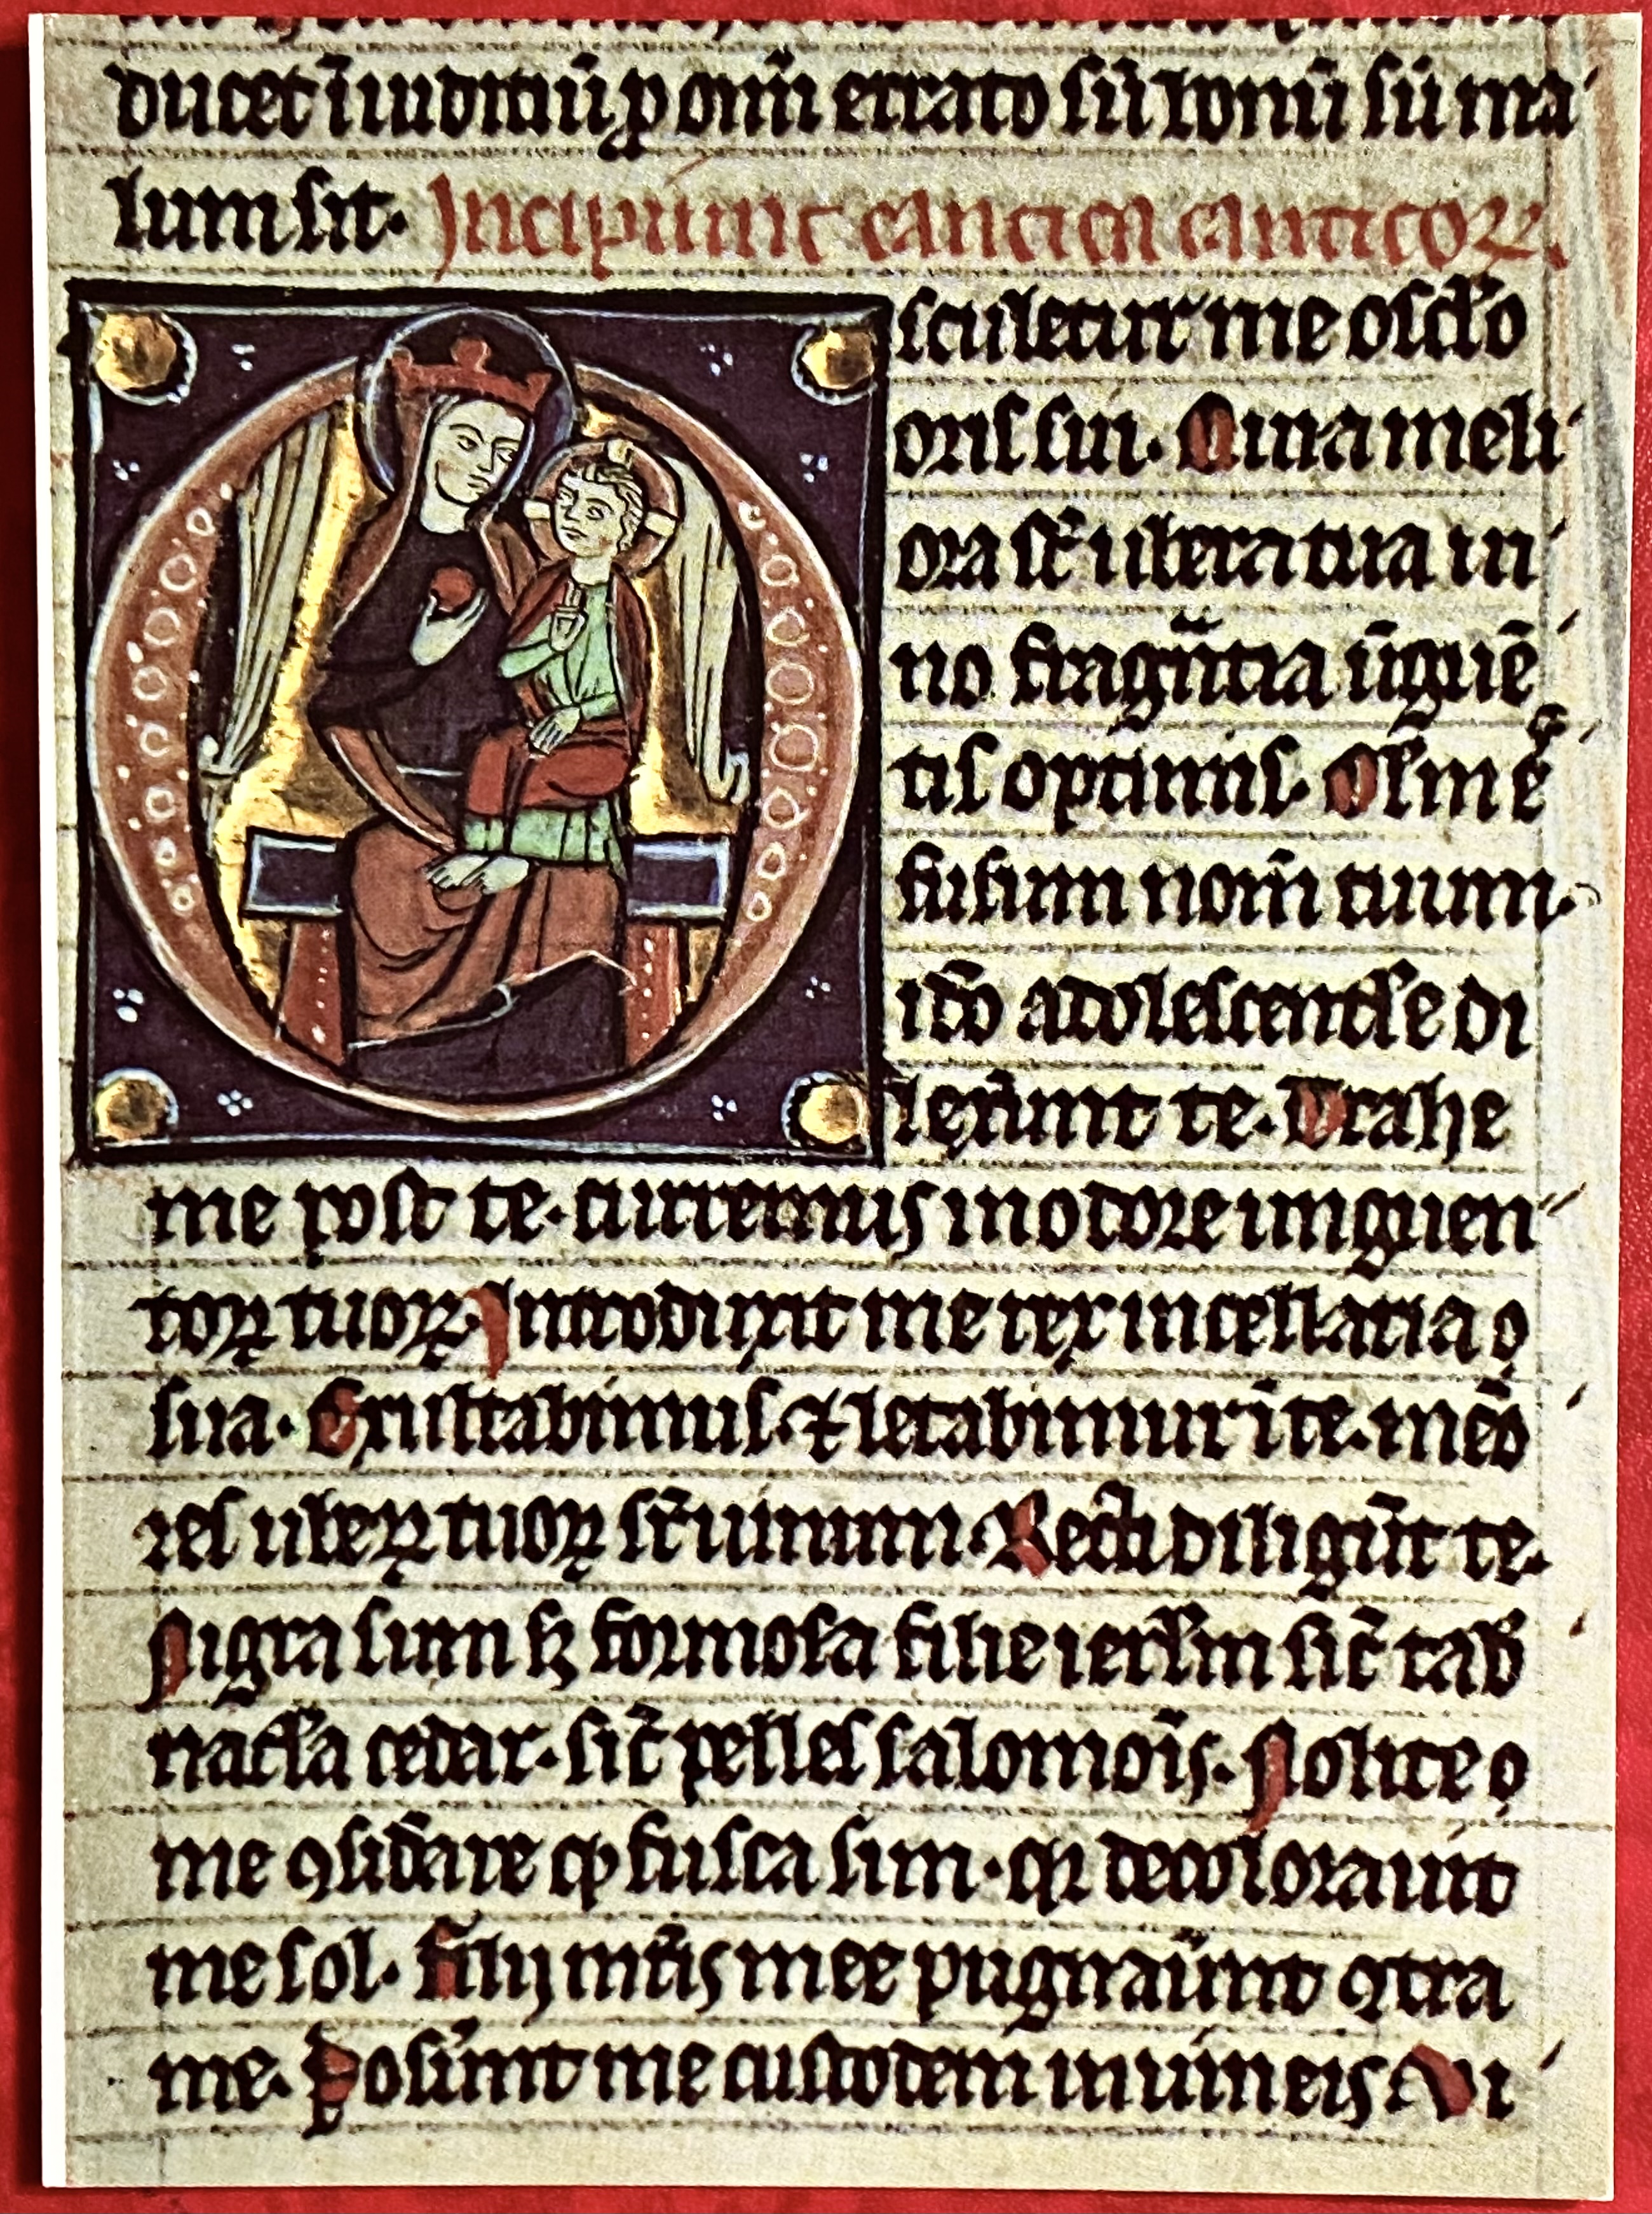 ducet ī iuditiū ꝓ om̄i errato siū bonū siū ma
lum sit. Incipiunt cantica canticoꝝ.
Osculetur me osc̄lo
oris sui. Quia meli
ora st̄ ubera tua ui
no fragn̄tia ūguē
tis optimis. Ol̄m ē
fusum nom̄ tuum.
iđo adolescentl̄e di
lex̄unt te. Trahe
me post te. curremus in odore unguen
toꝝ tuoꝝ. Introduxit me rex in cellaria
sua. Exultabimus. ⁊ letabimur ī te. mēo
res ubeꝝ tuoꝝ sr̄ uinum. Recti diligūt te.
Nigra sum sꝫ formosa filie ierl̄m sic̄ tab̄
nacl̄a cedar. sic̄ pelles salomōis. Nolite
me ꝯsid̄are ꝙ fusca sim. qꝛ decolorauit
me sol. Filij mr̄is mee pugnaūnt ꝯtra
me. Posūnt me custodem in uineis Vi